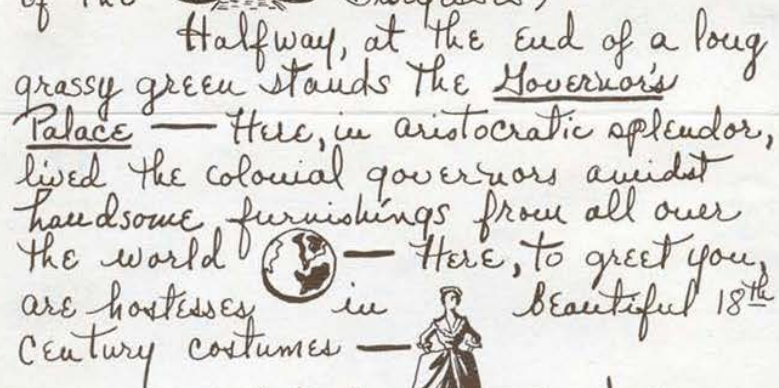 of the Burgesses,
Halfway, at the end of a long
grassy green stands the Governor's
Palace — Here, in aristocratic splendor,
lived the colonial governors amidst
handsome furnishings from all over
the world — Here, to greet you,
are hostesses in beautiful 18th
Century costumes —